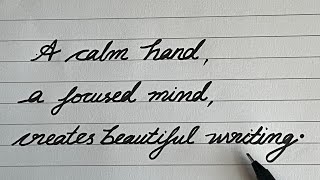 A calm hand,
a focused mind,
creates beautiful writing.